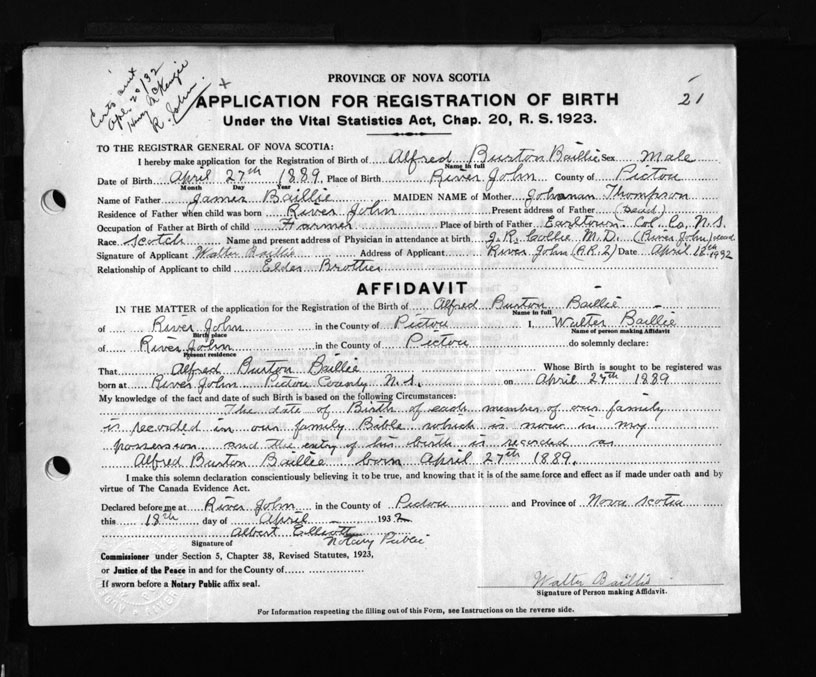 Cert sent
Apl. 20/32
Henry McKenzie
R. John.
x
21
PROVINCE OF NOVA SCOTIA
APPLICATION FOR REGISTRATION OF BIRTH
Under the Vital Statistics Act, Chap. 20, R. S. 1923.
TO THE REGISTRAR GENERAL OF NOVA SCOTIA:
I hereby make application for the Registration of Birth of Alfred Burton Baillie Sex Male
Name in full
Date of Birth April 27th 1889. Place of Birth River John County of Pictou
Month Day Year
Name of Father James Baillie MAIDEN NAME of Mother Johanan Thompson
Residence of Father when child was born River John Present address of Father (Dead)
Occupation of Father at Birth of child Farmer Place of birth of Father Earltown. Col. Co. N.S.
Race Scotch Name and present address of Physician in attendance at birth J. R. Collie M.D. (River John) dead
Signature of Applicant Walter Baillie Address of Applicant River John (R.R.2) Date April 18th 1932
Relationship of Applicant to child Elder Brother
AFFIDAVIT
IN THE MATTER of the application for the Registration of the Birth of Alfred Burton Baillie
Name in full
of River John in the County of Pictou I, Walter Baillie
Birth place Name of person making Affidavit
of River John in the County of Pictou do solemnly declare:
Present residence
That Alfred Burton Baillie Whose Birth is sought to be registered was
born at River John Pictou County N.S. on April 27th 1889
My knowledge of the fact and date of such Birth is based on the following Circumstances:
The date of Birth of each member of our family
is recorded in our family Bible which is now in my
possession and the entry of his birth is recorded as
Alfred Burton Baillie born April 27th 1889.
I make this solemn declaration conscientiously believing it to be true, and knowing that it is of the same force and effect as if made under oath and by
virtue of The Canada Evidence Act.
Declared before me at River John in the County of Pictou and Province of Nova Scotia
this 18th day of April 1932
Albert Elliott
Signature of Notary Public
Commissioner under Section 5, Chapter 38, Revised Statutes, 1923,
or Justice of the Peace in and for the County of
If sworn before a Notary Public affix seal.
Walter Baillie
Signature of Person making Affidavit.
For Information respecting the filling out of this Form, see Instructions on the reverse side.